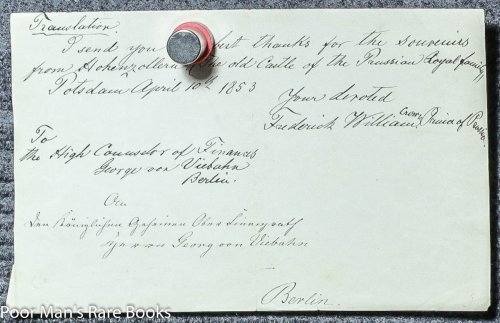 Translation.
I send you best thanks for the souvenirs
from Hohenzollern the old Castle of the Prussian Royal family.
Potsdam April 10th 1853
Your devoted
Frederick William, Crown Prince of Prussia.
To
the High Counselor of Finances
George von Viebahn
Berlin.
An
den Königlichen Geheimen Ober Finanzrath
Herrn Georg von Viebahn
Berlin.
Poor Man's Rare Books